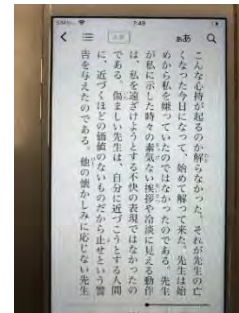 7:49
大字
ああ
こんな心持が起るのか解らなかった。それが先生の亡
くなった今日になって、始めて解って来た。先生は始
めから私を嫌っていたのではなかったのである。先生
が私に示した時々の素気ない挨拶や冷淡に見える動作
は、私を遠ざけようとする不快の表現ではなかったの
である。傷ましい先生は、自分に近づこうとする人間
に、近づくほどの価値のないものだから止せという警
告を与えたのである。他の懐かしみに応じない先生